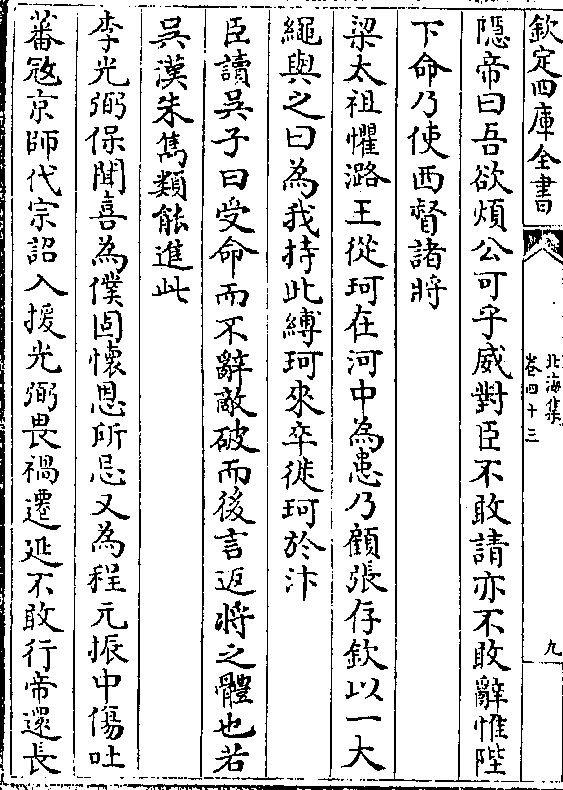 欽定四庫全書
北海集
卷四十三
九
隱帝曰吾欲煩公可乎威對臣不敢請亦不敢辭惟陛
下命乃使西督諸將
梁太祖懼潞王從珂在河中為患乃顧張存欽以一大
繩與之曰為我持此縛珂來卒徙珂於汴
臣讀吳子曰受命而不辭敵破而後言返將之體也若
吳漢朱雋類能進此
李光弼保聞喜為僕固懷恩所忌又為程元振中傷吐
蕃寇京師代宗詔入援光弼畏禍遷延不敢行帝還長